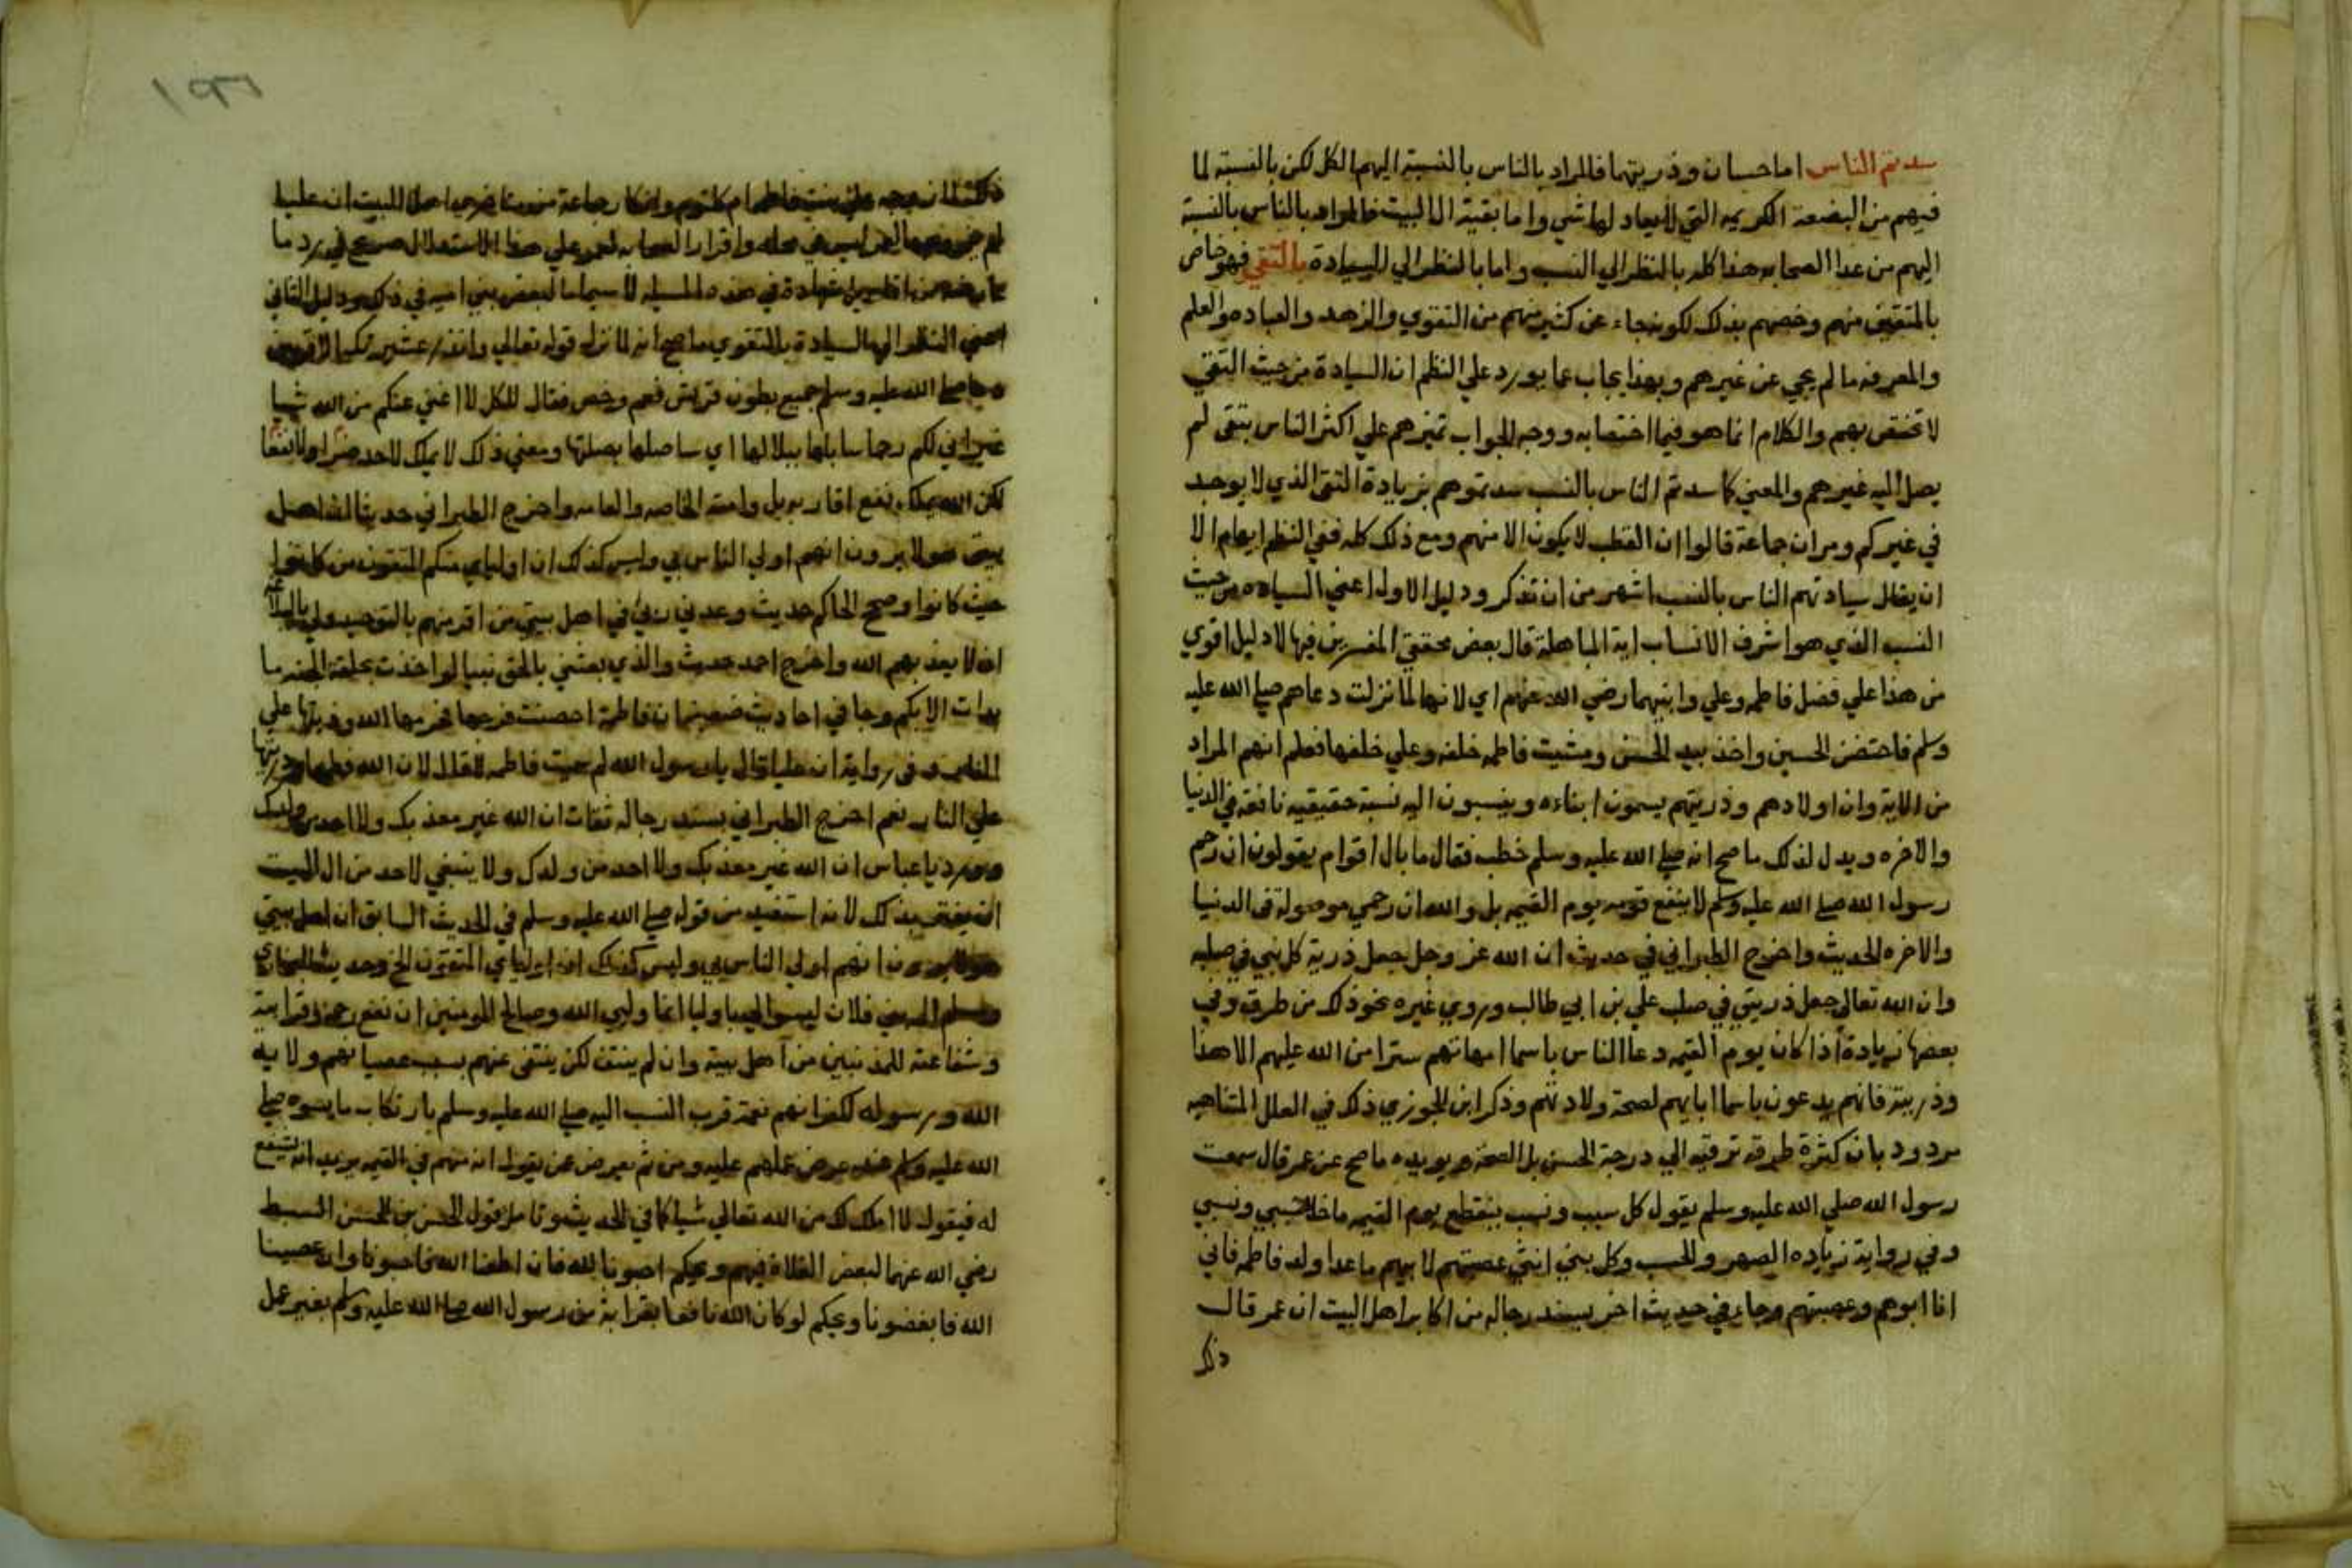 سدتم الناس اما حسان وذريتهما فالمراد بالناس بالنسبة اليهم الكل لكن بالنسبة لما
فيهم من البضعة الكريمه التي لا يعاد لها شي واما بقية ال البيت فالمراد بالناس بالنسبة
اليهم من عدا الصحابه هذا كله بالنظر الي النسب واما بالنظر الي السيادة بالتقي فهو خاص
بالمتقين منهم وخصهم بذلك لكونه جاء عن كثير منهم من التقوي والزهد والعباده والعلم
والمعرفه ما لم يجي عن غيرهم وبهذا يجاب عما يورد علي النظم ان السيادة من حيث التقي
لا تختص بهم والكلام انما هو فيما اختصوا به ووجه الجواب تميزهم علي اكثر الناس بتقي لم
يصل اليه غيرهم والمعني كما سدتم الناس بالنسب سدتموهم بزيادة التقي الذي لا يوجد
في غيركم ومر ان جماعة قالوا ان القطب لا يكون الا منهم ومع ذلك كله ففي النظم ايهام الا
ان يقال سيادتهم الناس بالنسب اشهر من ان تذكر ودليل الاول اعني السياده من حيث
النسب الذي هو اشرف الانساب اية المباهلة قال بعض محققي المفسرين فيها لا دليل اقوي
من هذا علي فضل فاطمه وعلي وابنيهما رضي الله عنهم اي لانها لما نزلت دعاهم صلي الله عليه
وسلم فاحتضن الحسين واخذ بيد الحسن ومشيت فاطمه خلفه وعلي خلفها فعلم انهم المراد
من الاية وان اولادهم وذريتهم يسمون ابناءه وينسبون اليه نسبة حقيقيه نافعة في الدنيا
والاخره ويدل لذلك ما صح انه صلي الله عليه وسلم خطب فقال ما بال اقوام يقولون ان رحم
رسول الله صلي الله عليه وسلم لا ينفع قومه يوم القيمه بل والله ان رحمي موصولة في الدنيا
والاخره الحديث واخرج الطبراني في حديث ان الله عز وجل جعل ذرية كل نبي في صلبه
وان الله تعالي جعل ذريتي في صلب علي بن ابي طالب وروي غيره نحو ذلك من طرق وفي
بعضها زيادة اذا كان يوم القيمه دعا الناس باسما امهاتهم سترا من الله عليهم الا هذا
وذريته فانهم يدعون باسما ابايهم لصحة ولادتهم وذكر ابن الجوزي ذلك في العلل المتناهيه
مردود بان كثرة طرقه ترقيه الي درجة الحسن بل الصحة ويويده ما صح عن عمر قال سمعت
رسول الله صلي الله عليه وسلم يقول كل سبب ونسب ينقطع يوم القيمه ما خلا سببي ونسبي
وفي رواية زياده الصهر والحسب وكل بني انثي عصبتهم لابيهم ما عدا ولد فاطمه فاني
انا ابوهم وعصبتهم وجاء في حديث اخر بسند رجاله من اكابر اهل البيت ان عمر قال
ذلك
١٣٦
لم علي هذا الاستدلال صريح في رد ما
في هذه المسيله لا سيما لبعض بني اميه في ذلك ودليل الثاني
اعني النظر الي السيادة بالتقوي ما صح انه لما نزل قوله تعالي وانذر عشيرتك الاقربين
الله عليه وسلم جميع بطون قريش فعم وخص فقال للكل لا اغني عنكم من الله شيا
غير ان لكم رحما سابلها ببلالها اي ساصلها بصلتها ومعني ذلك لا يملك لاحد ضرا ولا نفعا
لكن الله يملكه نفع اقاربه بل وامته الخاصه والعامه واخرج الطبراني حديث ان اهل
بيتي هولا يرون انهم اولي الناس بي وليس كذلك ان اوليايي منكم المتقون من كانوا
حيث كانوا وصح الحاكم حديث وعدني ربي في اهل بيتي من اقر منهم بالتوحيد ولي بالبلاغ
ان لا يعذبهم الله واخرج احمد حديث والذي بعثني بالحق نبيا لو اخذت بحلقة الجنه ما
بدات الا بكم وجا في احاديث ضعيفه ان فاطمة احصنت فرجها فحرمها الله وذريتها علي
وفي رواية ان عليا قال يا رسول الله لم سميت فاطمه فقال لان الله فطمها وذريتها
علي النار نعم اخرج الطبراني بسند رجاله ثقات ان الله غير معذبك ولا احد من ولدك
وورد يا عباس ان الله غير معذبك ولا احد من ولدك ولا ينبغي لاحد من ال البيت
ان يغتر بذلك لانه استفيد من قوله صلي الله عليه وسلم في الحديث السابق ان اهل بيتي
هولا يرون انهم اولي الناس بي وليس كذلك ان اوليايي المتقون الخ وحديث البخاري
ومسلم ان بني فلان ليسوا لي باوليا انما وليي الله وصالح المومنين ان نفع رحمه وقرابته
وشفاعته للمذنبين من اهل بيته وان لم ينتف لكن ينتفي عنهم بسبب عصيانهم ولاية
الله ورسوله لكفرانهم نعمة قرب النسب اليه صلي الله عليه وسلم بارتكاب ما يسوه صلي
الله عليه وسلم عند عرض عملهم عليه ومن ثم يعرض عن يقول انه منهم في القيمه يريد انه تشفع
له فيقول لا املك لك من الله تعالي شيا كما في الحديث وتامل قول الحسن بن الحسن السبط
رضي الله عنهما لبعض الغلاة فيهم ويحكم احبونا لله فان اطعنا الله فاحبونا وان عصينا
الله فابغضونا ويحكم لو كان الله نافعا بقرابة من رسول الله صلي الله عليه وسلم بغير عمل